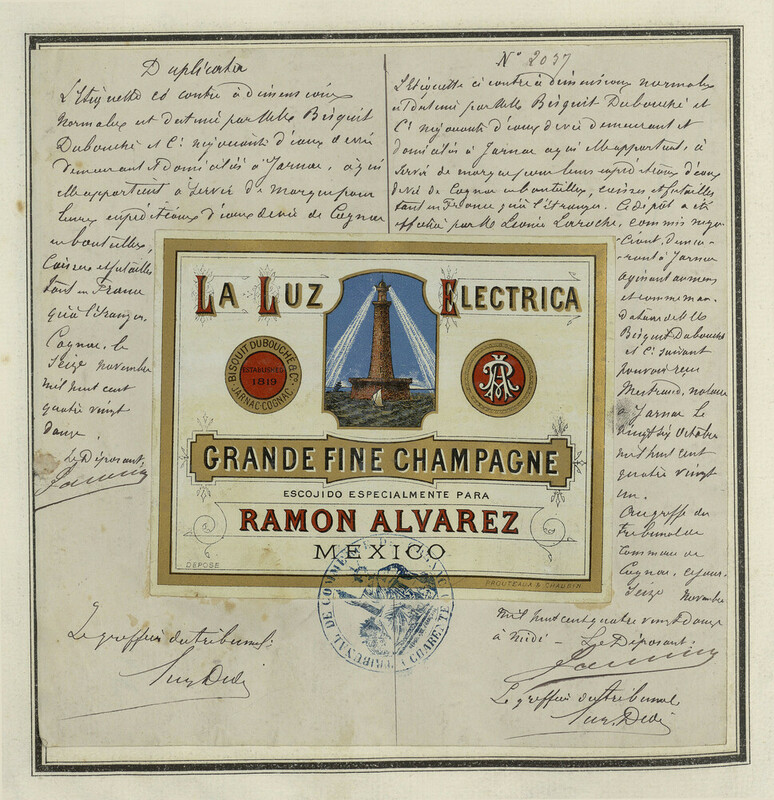 Duplicata
L'étiquette ci contre à dimensions
normales est destinée par MM Bisquit
Dubouché et Cie négociants d'eaux de vie
demeurant et domiciliés à Jarnac,
à servir de marque pour
leurs expéditions d'eaux de vie de Cognac
en bouteilles,
caisses et futailles
tant en France
qu'à l'étranger.
Cognac, le
seize novembre
mil huit cent
quatre vingt
douze.
Le Déposant,
Le greffier du tribunal,
N° 2037
L'étiquette ci contre à dimensions normales
est destinée par MM Bisquit Dubouché et
Cie négociants d'eaux de vie demeurant et
domiciliés à Jarnac à
servir de marque pour leurs expéditions d'eaux
de vie de Cognac en bouteilles, caisses et futailles
tant en France qu'à l'étranger. Ce dépôt a été
effectué par M. Léonce Laroche, commis négo-
ciant, demeu-
rant à Jarnac
agissant au nom
et comme man-
dataire de MM
Bisquit Dubouché
et Cie suivant
pouvoir reçu
notaire
à Jarnac le
vingt six octobre
mil huit cent
quatre vingt
un.
Au greffe du
tribunal de
commerce de
Cognac, ce jour
seize novembre
mil huit cent quatre vingt douze
à midi — Le Déposant,
Le greffier du tribunal
LA LUZ ELECTRICA
BISQUIT DUBOUCHÉ & Co
ESTABLISHED
1819
JARNAC-COGNAC
AR
GRANDE FINE CHAMPAGNE
ESCOJIDO ESPECIALMENTE PARA
RAMON ALVAREZ
MEXICO
DÉPOSÉ
PROUTEAUX & CHAUBIN
TRIBUNAL DE COMMERCE DE COGNAC
CHARENTE